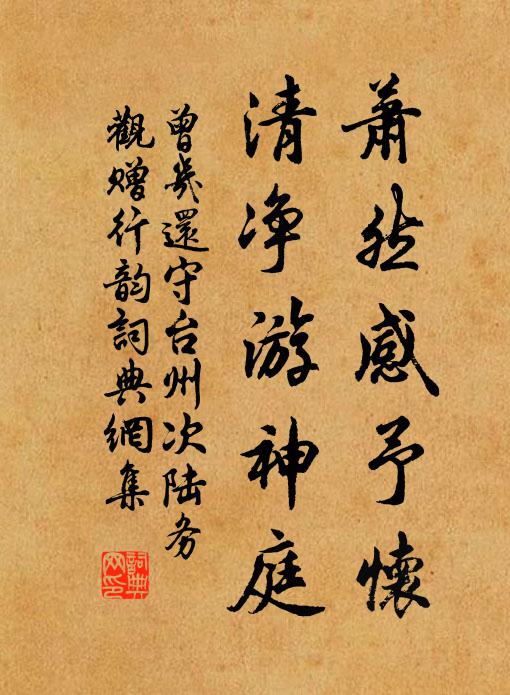 蕭然感予懷
清净游神庭
曾幾還守台州次陆务
觀贈行韵詞典網集
詞典
网印